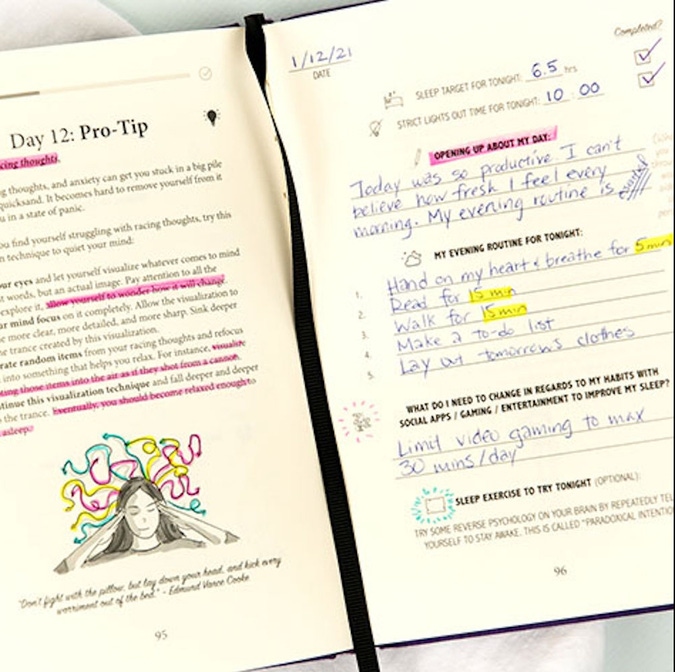 Day 12: Pro-Tip
cing thoughts.
g thoughts, and anxiety can get you stuck in a big pile
quicksand. It becomes hard to remove yourself from it
u in a state of panic.
ou find yourself struggling with racing thoughts, try this
n technique to quiet your mind:
our eyes and let yourself visualize whatever comes to mind
t words, but an actual image. Pay attention to all the
explore it, allow yourself to wonder how it will change.
ur mind focus on it completely. Allow the visualization to
e more clear, more detailed, and more sharp. Sink deeper
e trance created by this visualization.
rate random items from your racing thoughts and refocus
into something that helps you relax. For instance, visualize
ting those items into the air as if they shot from a cannon.
ntinue this visualization technique and fall deeper and deeper
o the trance. Eventually, you should become relaxed enough to
asleep.
"Don't fight with the pillow, but lay down your head, and kick every
worriment out of the bed." - Edmund Vance Cooke
95
1/12/21
DATE
Completed?
SLEEP TARGET FOR TONIGHT: 6.5 hrs
STRICT LIGHTS OUT TIME FOR TONIGHT: 10 : 00
OPENING UP ABOUT MY DAY:
Today was so productive I can't
believe how fresh I feel every
morning. My evening routine is
MY EVENING ROUTINE FOR TONIGHT:
1. Hand on my heart & breathe for 5 min
2. Read for 15 min
3. Walk for 15 min
4. Make a to-do list
5. Lay out tomorrows clothes
WHAT DO I NEED TO CHANGE IN REGARDS TO MY HABITS WITH
SOCIAL APPS / GAMING / ENTERTAINMENT TO IMPROVE MY SLEEP?
Limit video gaming to max
30 mins/day
SLEEP EXERCISE TO TRY TONIGHT (OPTIONAL):
TRY SOME REVERSE PSYCHOLOGY ON YOUR BRAIN BY REPEATEDLY TEL
YOURSELF TO STAY AWAKE. THIS IS CALLED "PARADOXICAL INTENTIO
96